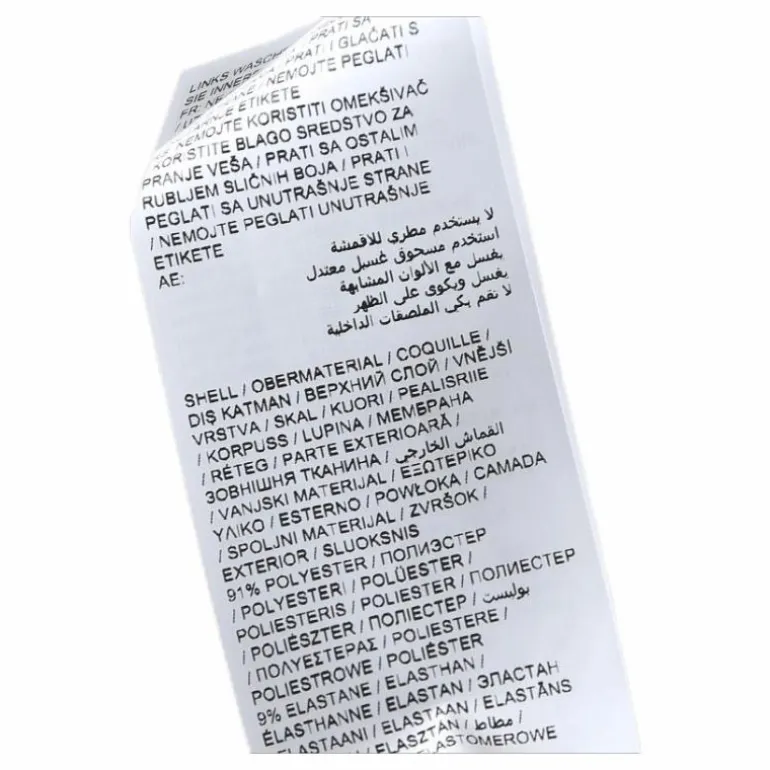 LINKS WASCHEN / PRATI SA
PRATI I GLAČATI S
NEMOJTE PEGLATI
ETIKETE
NEMOJTE KORISTITI OMEKŠIVAČ
KORISTITE BLAGO SREDSTVO ZA
PRANJE VEŠA / PRATI SA OSTALIM
RUBLJEM SLIČNIH BOJA / PRATI I
PEGLATI SA UNUTRAŠNJE STRANE
/ NEMOJTE PEGLATI UNUTRAŠNJE
ETIKETE
AE:
لا يستخدم مطري للاقمشة
استخدم مسحوق غسيل معتدل
يغسل مع الألوان المشابهة
يغسل ويكوى على الظهر
لا تقم بكي الملصقات الداخلية
SHELL / OBERMATERIAL / COQUILLE /
DIŞ KATMAN / ВЕРХНИЙ СЛОЙ / VNĚJŠI
VRSTVA / SKAL / KUORI / PEALISRIIE
/ KORPUSS / LUPINA / МЕМБРАНА
/ RÉTEG / PARTE EXTERIOARĂ /
ЗОВНІШНЯ ТКАНИНА / القماش الخارجي
/ VANJSKI MATERIJAL / ΕΞΩΤΕΡΙΚΟ
ΥΛΙΚΟ / ESTERNO / POWŁOKA / CAMADA
/ SPOLJNI MATERIJAL / ZVRŠOK /
EXTERIOR / SLUOKSNIS
91% POLYESTER / ПОЛИЭСТЕР
/ POLYESTERI / POLÜESTER /
POLIESTERIS / POLIESTER / ПОЛИЕСТЕР
/ POLIÉSZTER / ПОЛІЕСТЕР / بوليستر
/ ΠΟΛΥΕΣΤΕΡΑΣ / POLIESTERE /
POLIESTROWE / POLIÉSTER
9% ELASTANE / ELASTHAN /
ÉLASTHANNE / ELASTAN / ЭЛАСТАН
/ ELASTAANI / ELASTAAN / ELASTĀNS
/ ELASZTÁN / مطاط /
ELASTOMEROWE